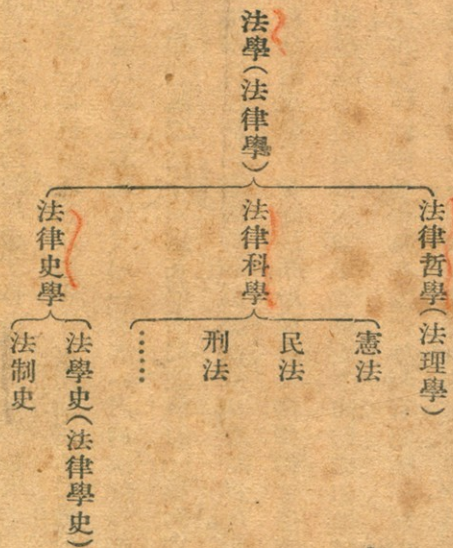 法學(法律學)
法律哲學(法理學)
法律科學
憲法
民法
刑法
……
法律史學
法學史(法律學史)
法制史